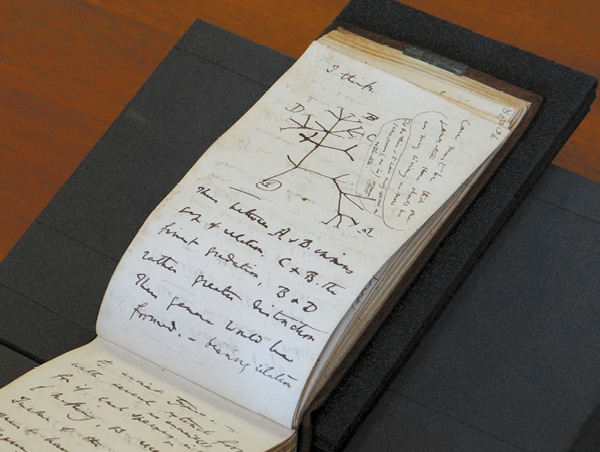 I think
B
D
C
A
1
Case must be that
one generation then should be
as many living as now
To do this & to have many species in
same genus (as is) requires
extinction
Thus between A & B. immense
gap of relation. C & B. the
finest gradation, B & D
rather greater distinction
Thus genera would be
formed. — bearing relation
to ancient types. —
with several extinct forms
for if each species